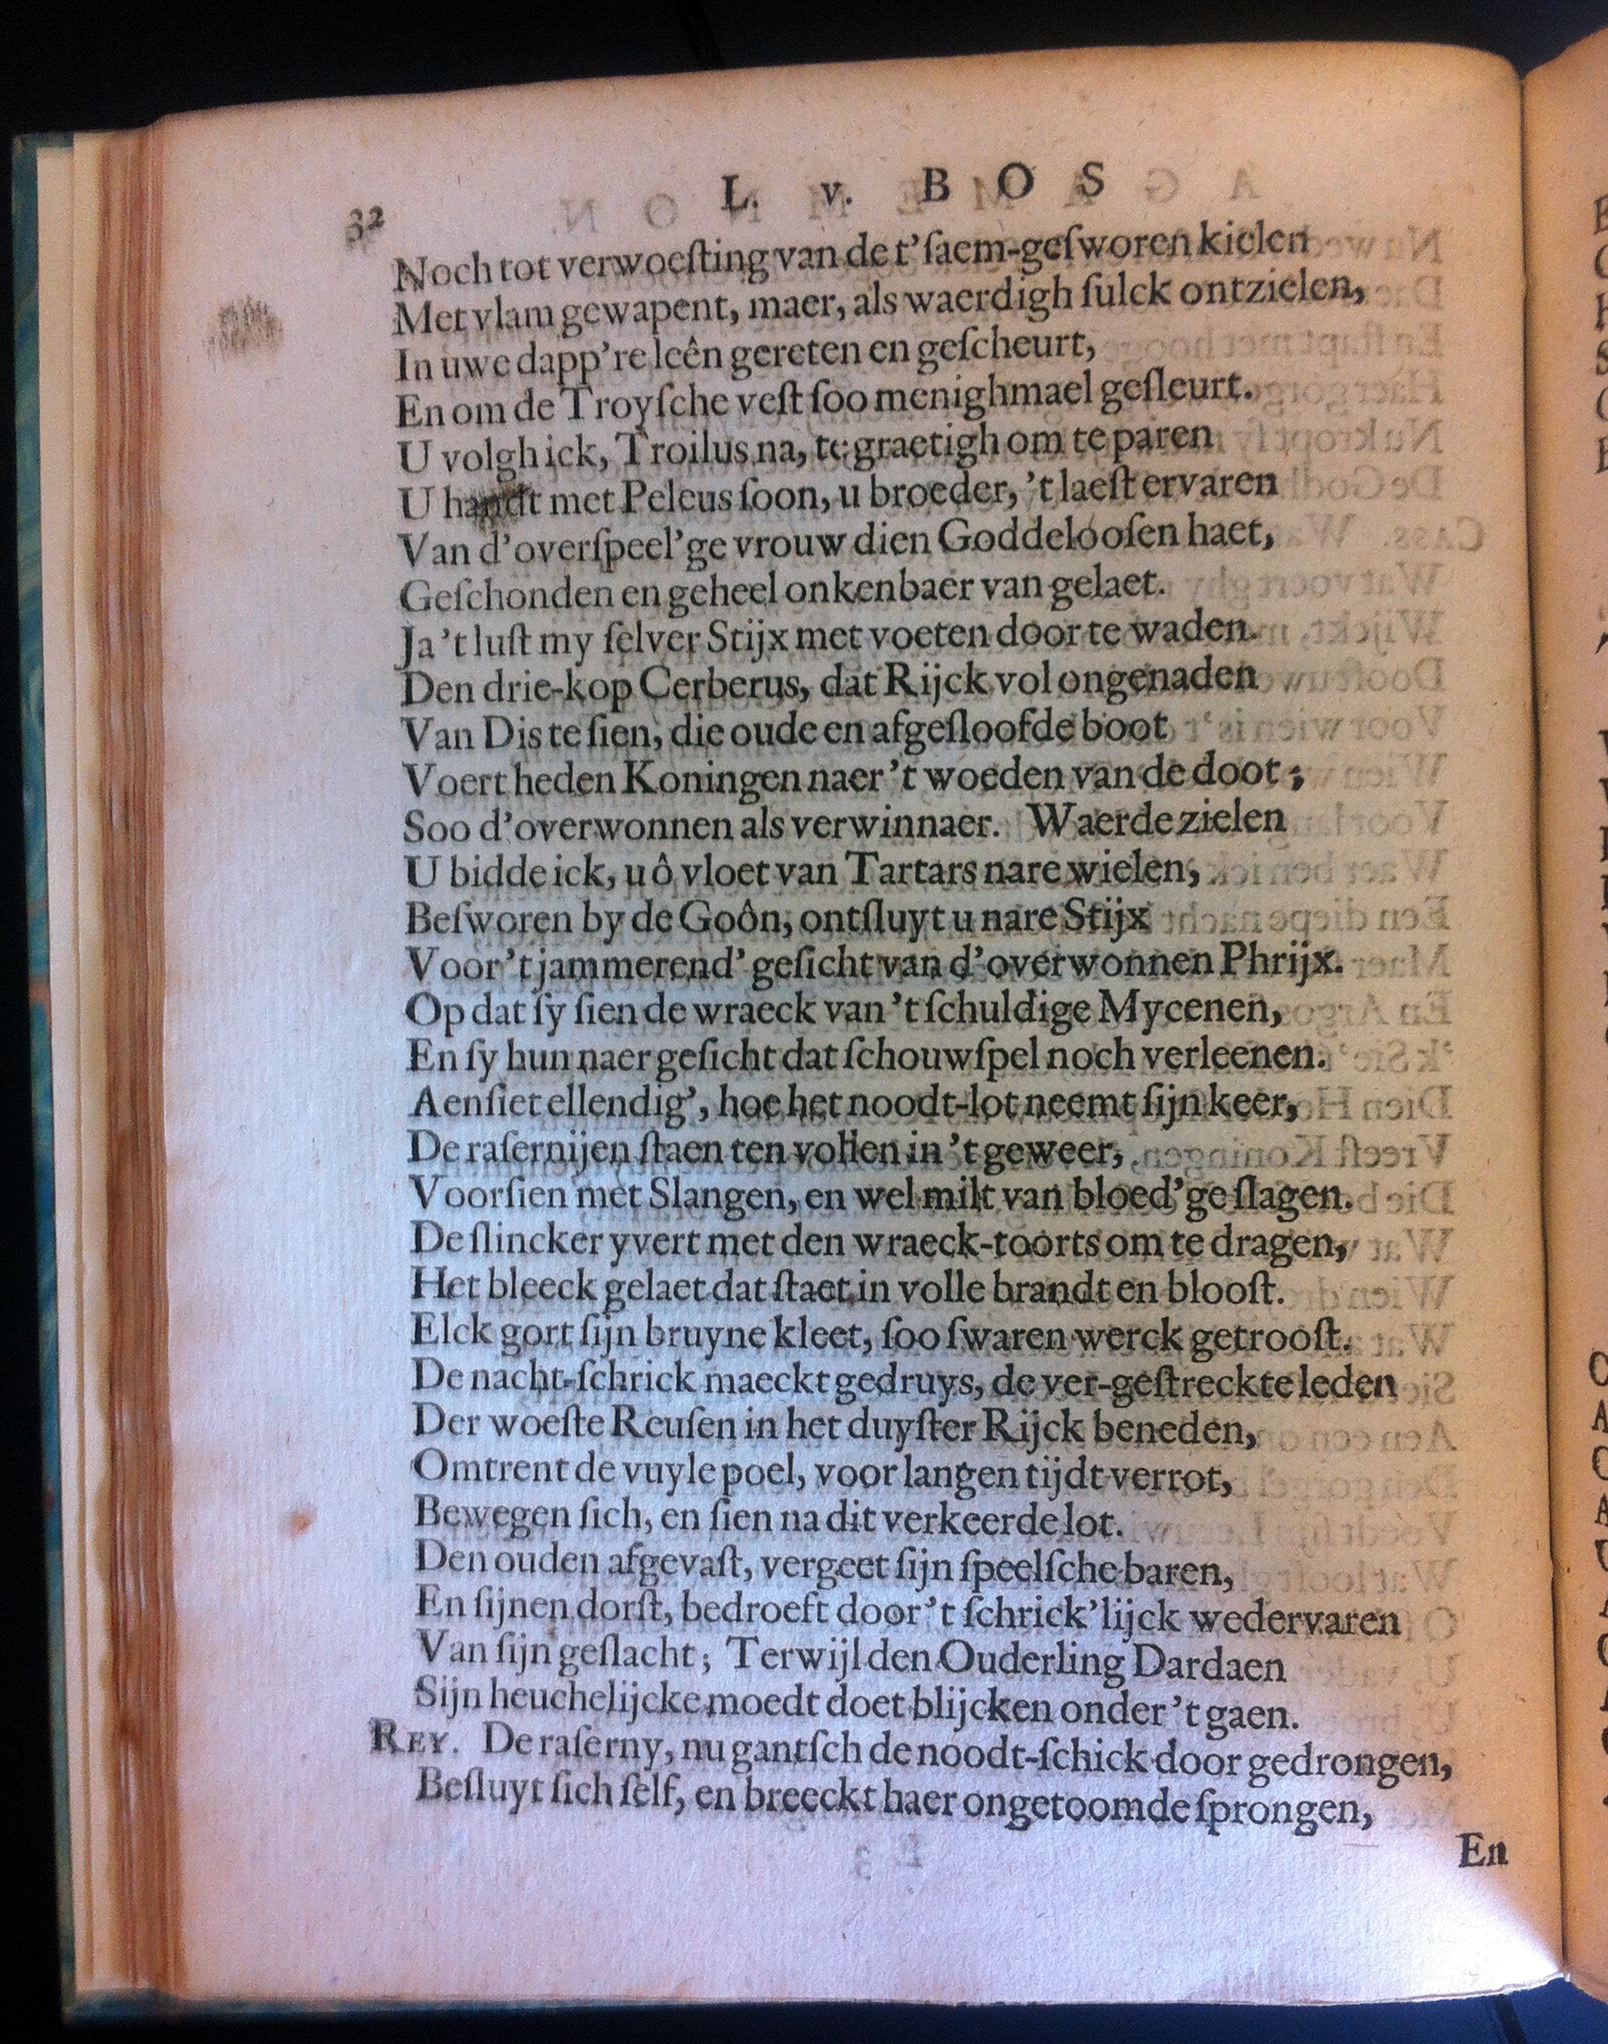 32 L. v. BOS
Noch tot verwoeſting van de t'ſaem-geſworen kielen
Met vlam gewapent, maer, als waerdigh ſulck ontzielen,
In uwe dapp're leên gereten en geſcheurt,
En om de Troyſche veſt ſoo menighmael geſleurt.
U volgh ick, Troilus na, te graetigh om te paren
U handt met Peleus ſoon, u broeder, 't laeſt ervaren
Van d'overſpeel'ge vrouw dien Goddelooſen haet,
Geſchonden en geheel onkenbaer van gelaet.
Ja 't luſt my ſelver Stijx met voeten door te waden.
Den drie-kop Cerberus, dat Rijck vol ongenaden
Van Dis te ſien, die oude en afgeſloofde boot
Voert heden Koningen naer 't woeden van de doot;
Soo d'overwonnen als verwinnaer. Waerde zielen
U bidde ick, u ô vloet van Tartars nare wielen,
Beſworen by de Goôn, ontſluyt u nare Stijx
Voor 't jammerend' geſicht van d'overwonnen Phrijx.
Op dat ſy ſien de wraeck van 't ſchuldige Mycenen,
En ſy hun naer geſicht dat ſchouwſpel noch verleenen.
Aenſiet ellendig', hoe het noodt-lot neemt ſijn keer,
De raſernijen ſtaen ten vollen in 't geweer,
Voorſien met Slangen, en wel milt van bloed' geſlagen.
De ſlincker yvert met den wraeck-toorts om te dragen,
Het bleeck gelaet dat ſtaet in volle brandt en blooſt.
Elck gort ſijn bruyne kleet, ſoo ſwaren werck getrooſt.
De nacht-ſchrick maeckt gedruys, de ver-geſtreckte leden
Der woeſte Reuſen in het duyſter Rijck beneden,
Omtrent de vuyle poel, voor langen tijdt verrot,
Bewegen ſich, en ſien na dit verkeerde lot.
Den ouden afgevaſt, vergeet ſijn ſpeelſche baren,
En ſijnen dorſt, bedroeft door 't ſchrick'lijck wedervaren
Van ſijn geſlacht; Terwijl den Ouderling Dardaen
Sijn heuchelijcke moedt doet blijcken onder 't gaen.
REY. De raſerny, nu gantſch de noodt-ſchick door gedrongen,
Beſluyt ſich ſelf, en breeckt haer ongetoomde ſprongen,
En